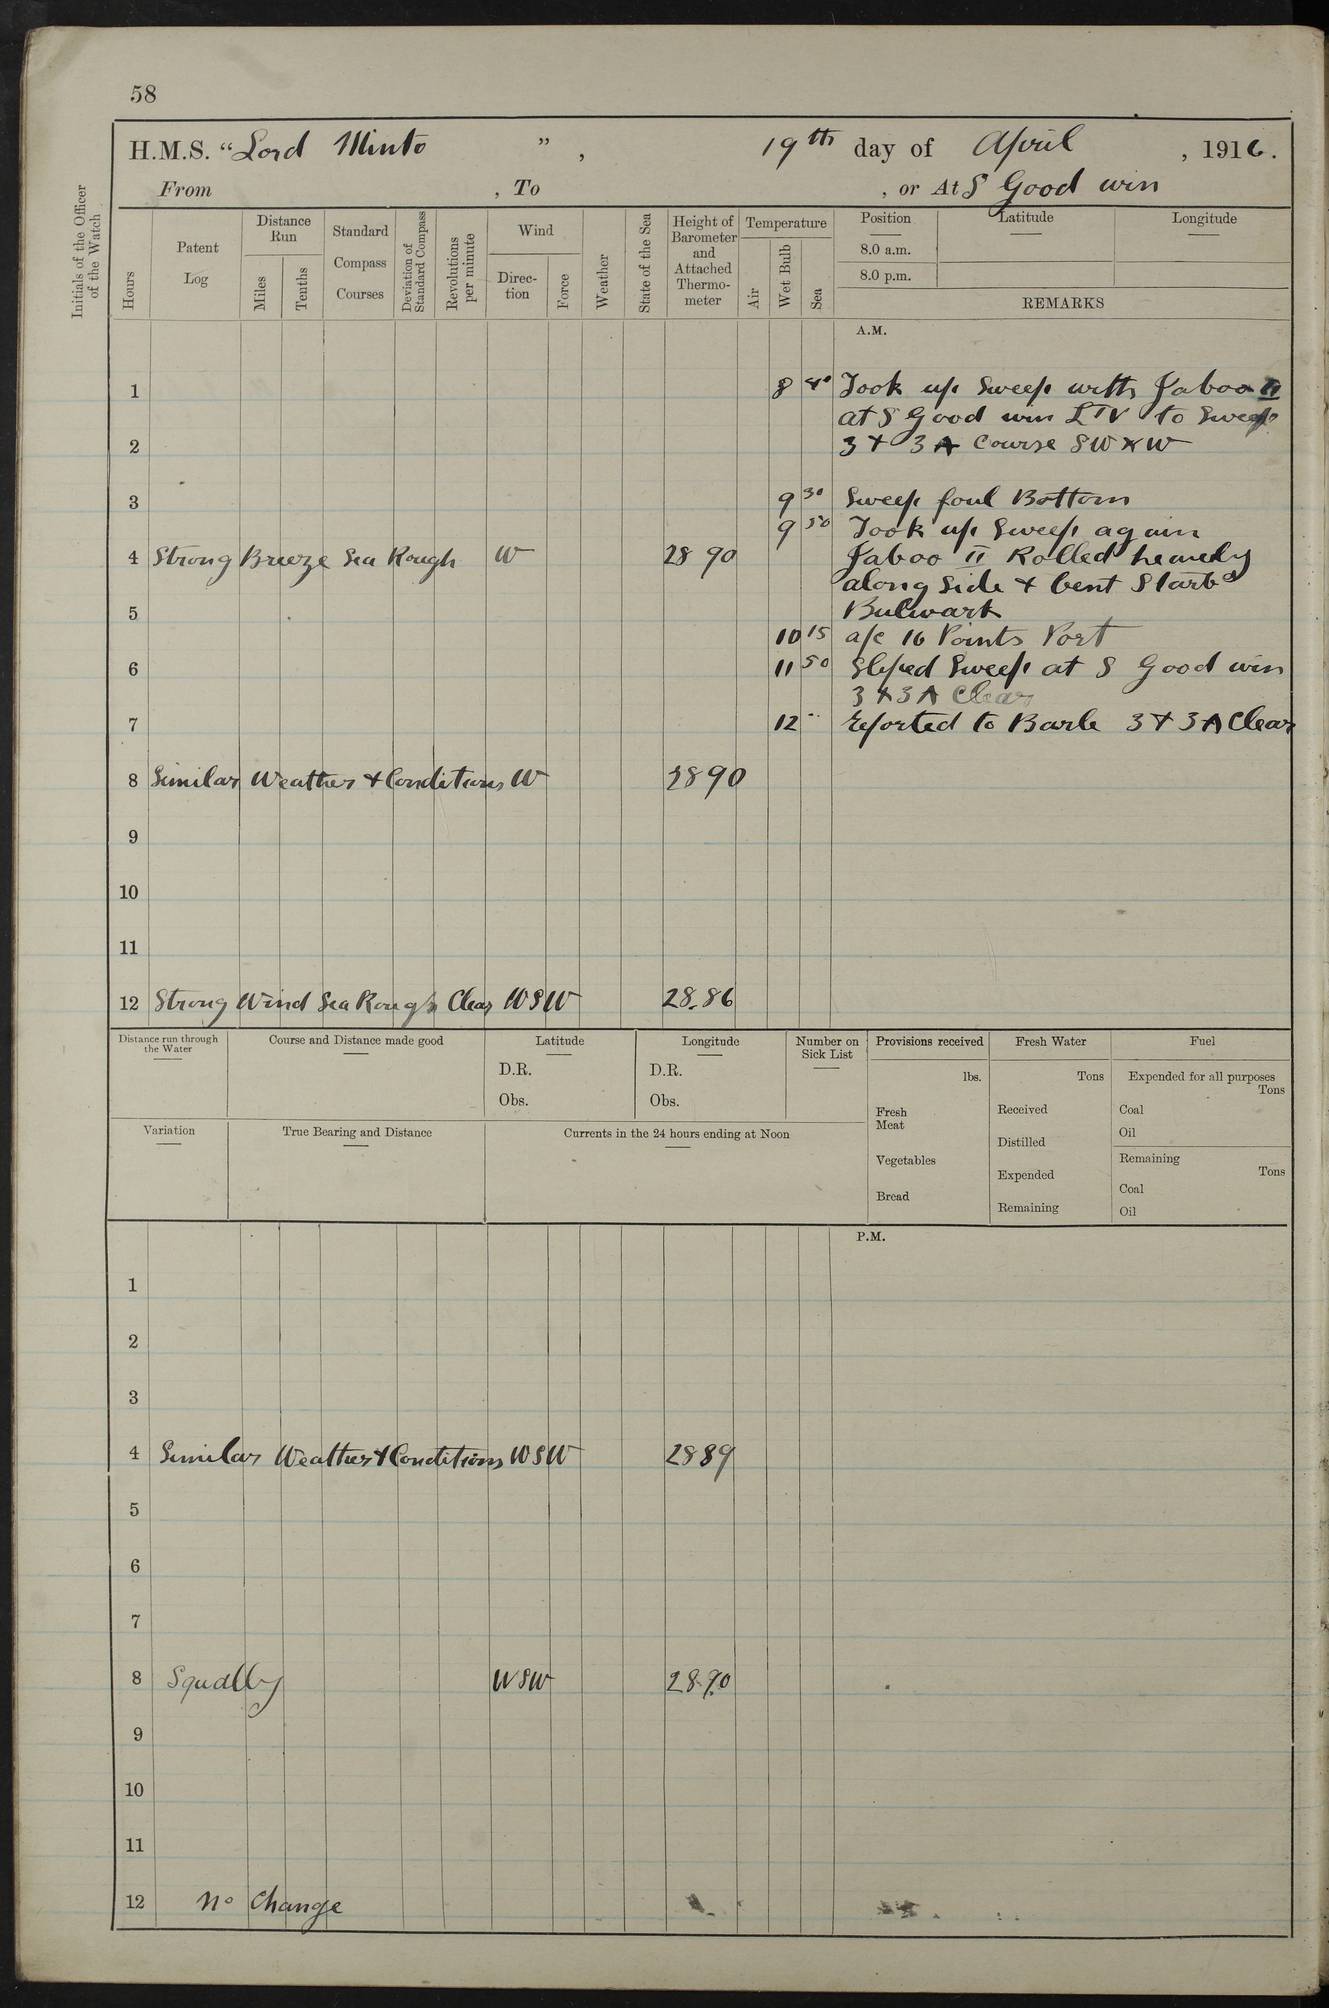 58
H.M.S. "Lord Minto", 19th day of April, 1916.
From , To , or At S Good win
Initials of the Officer of the Watch
Hours
Patent Log
Distance Run
Miles
Tenths
Standard Compass Courses
Deviation of Standard Compass
Revolutions per minute
Wind
Direction
Force
Weather
State of the Sea
Height of Barometer and Attached Thermometer
Temperature
Air
Wet Bulb
Sea
Position Latitude Longitude
8.0 a.m.
8.0 p.m.
REMARKS
A.M.
1 8 40 Took up Sweep with Jaboo II
at S Good win LTV to Sweep
2 3 + 3A Course SW x W
3 9 30 Sweep foul Bottom
9 50 Took up Sweep again
4 Strong Breeze Sea Rough W 28 90 Jaboo II Rolled heavely
along side & bent Starbd
5 Bulwark
10 15 a/c 16 Points Port
6 11 50 Sliped Sweep at S Good win
3 & 3A Clear
7 12 Reported to Barle 3 + 3A Clear
8 Similar Weather & Conditions W 28 90
9
10
11
12 Strong Wind Sea Rough Clear WSW 28.86
Distance run through the Water
Course and Distance made good
Latitude
D.R.
Obs.
Longitude
D.R.
Obs.
Number on Sick List
Provisions received
lbs.
Fresh Meat
Vegetables
Bread
Fresh Water
Tons
Received
Distilled
Expended
Remaining
Fuel
Expended for all purposes
Tons
Coal
Oil
Remaining
Tons
Coal
Oil
Variation
True Bearing and Distance
Currents in the 24 hours ending at Noon
P.M.
1
2
3
4 Similar Weather & Conditions WSW 28 89
5
6
7
8 Squally WSW 28.90
9
10
11
12 No Change